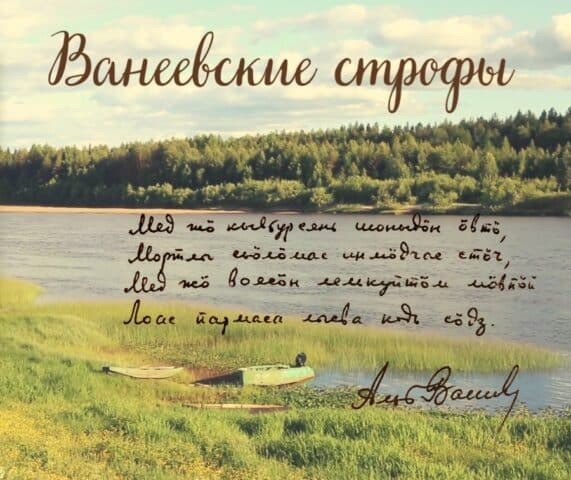 Ванеевские строфы
Мед жӧ кывбурсянь шоныдӧн ӧвтӧ,
Мортлы сьӧлӧмас инмӧдчас стӧч,
Мед жӧ воясӧн лемкуйтӧм мӧвпӧй
Лоас пармаса лысва кодь сӧдз.